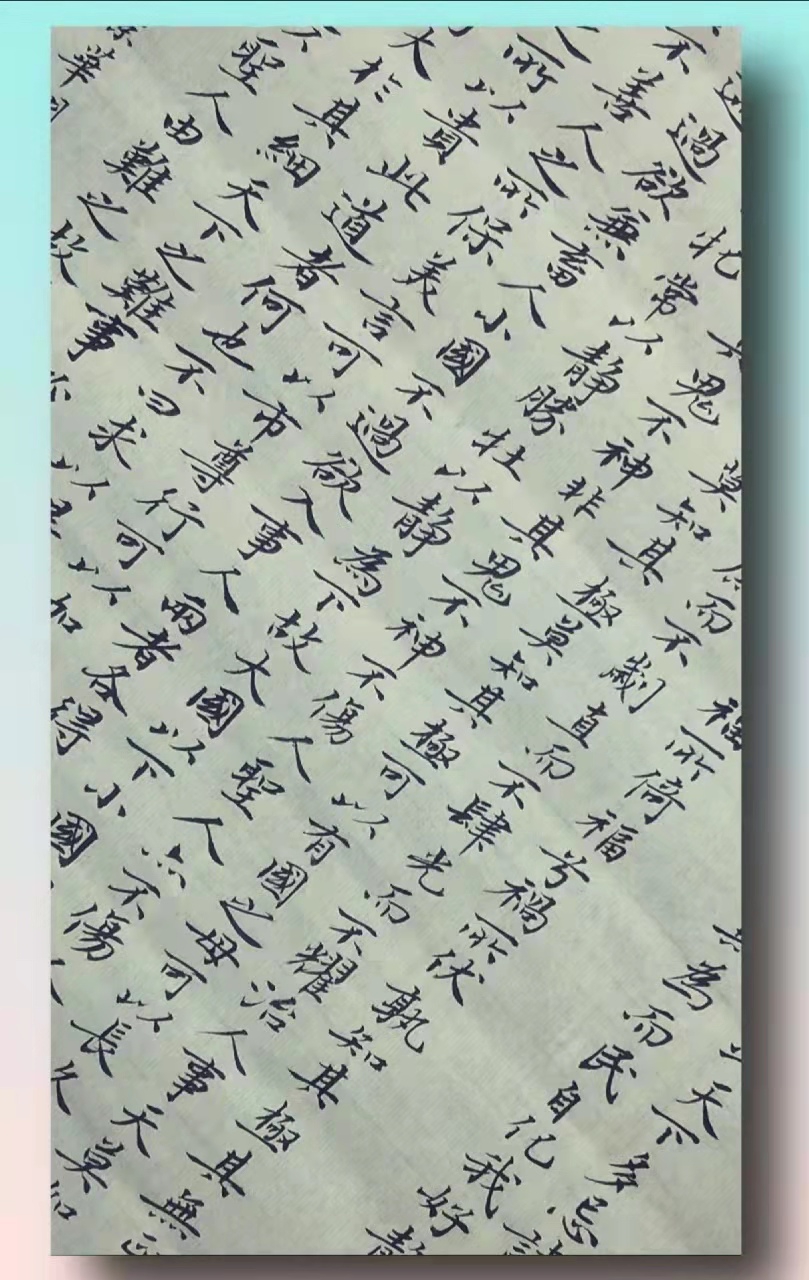 天下多忌諱
為而民自化我好靜
福所倚福兮禍所伏孰知其極其無正
而不劌直而不肆光而不耀治人事天莫如
莫知其極莫知其極可以有國之母可以長久
其鬼不神非其鬼不神不傷人聖人亦不傷人
牝常以靜勝牡以靜為下故大國以下小國
過欲無畜人小國不過欲入事人兩者各得
不善人之所保美言可以市尊行可以加
之所以貴此道者何也不曰求以
大於其細天下之難事
聖人由難之故
華